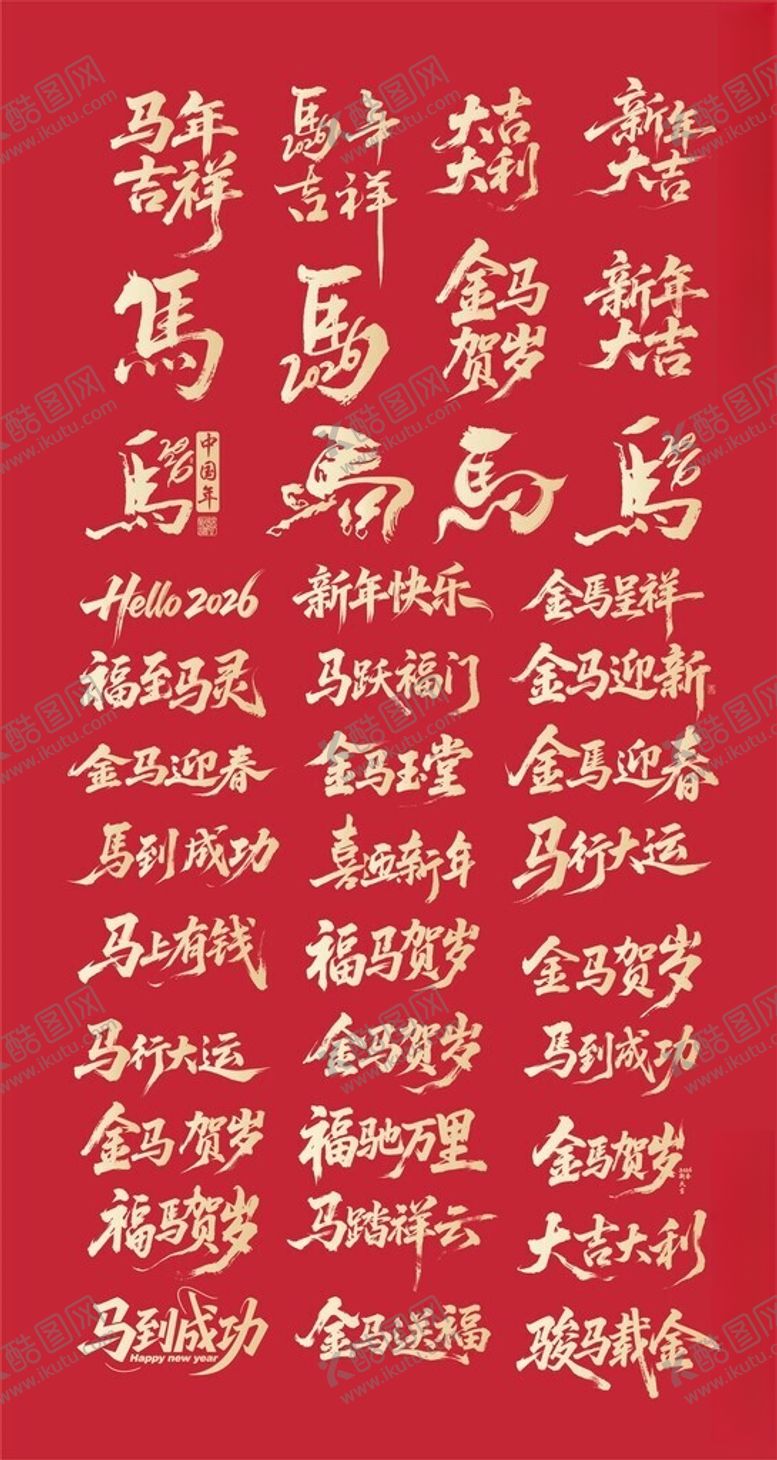 马年
吉祥
馬年
2026
吉祥
大吉
大利
新年
大吉
馬
馬
2026
金马
贺岁
新年
大吉
馬
2026
中国年
馬
馬
馬
2026
Hello 2026
新年快乐
金馬呈祥
福至马灵
马跃福门
金马迎新
金马迎春
金马玉堂
金馬迎春
馬到成功
喜迎新年
马行大运
马上有钱
福马贺岁
金马贺岁
马行大运
金马贺岁
馬到成功
金马贺岁
福驰万里
金馬贺岁
福馬贺岁
马踏祥云
大吉大利
马到成功
Happy new year
金马送福
骏马载金
酷图网
www.ikutu.com